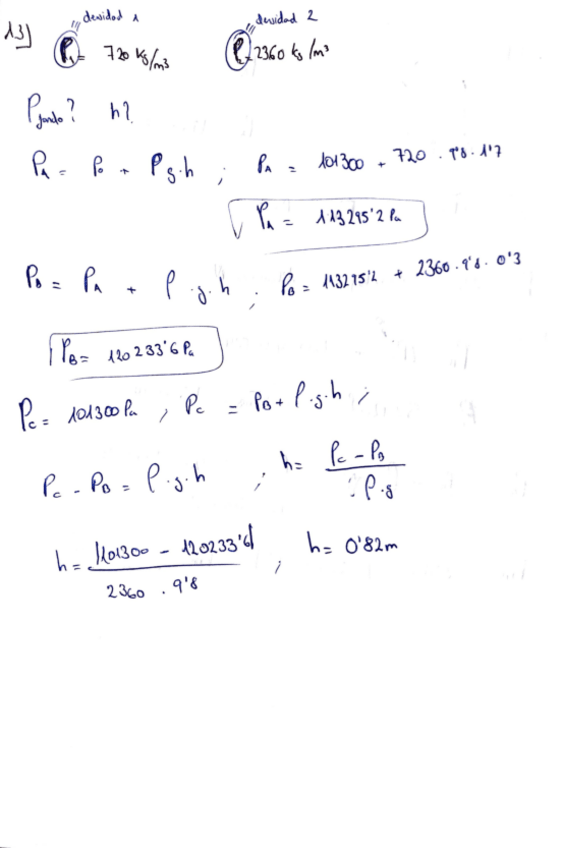 densidad 1 densidad 2
13) ρ₁ = 720 kg/m³ ρ₂ = 2360 kg/m³
Pfondo? h?
PA = P0 + ρg·h ; PA = 101300 + 720 · 9'8 · 1'7
PA = 113295'2 Pa
PB = PA + ρ·g·h ; PB = 113295'2 + 2360 · 9'8 · 0'3
PB = 120233'6 Pa
Pc = 101300 Pa , Pc = PB + ρ·g·h ;
Pc - PB = ρ·g·h ; h = Pc - PB / ρ·g
h = |101300 - 120233'6| / 2360 · 9'8 ; h = 0'82m